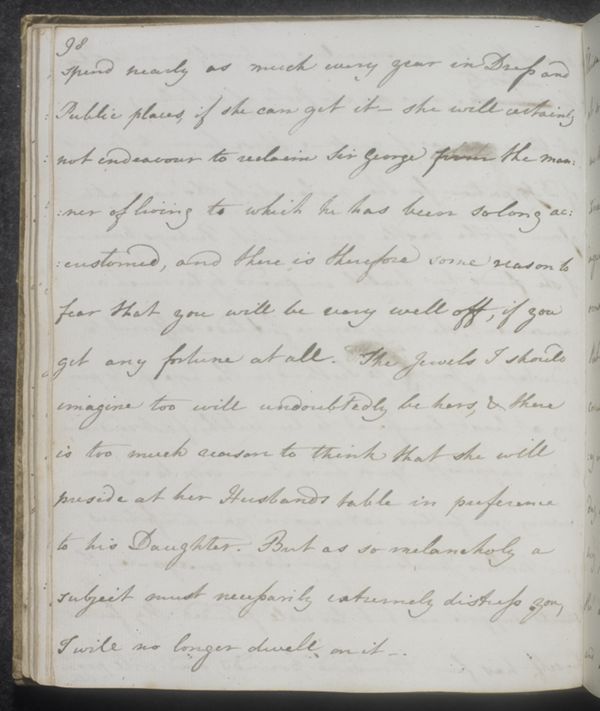 98
spend nearly as much every year in Dress and
Public places, if she can get it – she will certainly
not endeavour to reclaim Sir George from the man:
:ner of living to which he has been so long ac:
:customed, and there is therefore some reason to
fear that you will be very well off, if you
get any fortune at all. The Jewels I should
imagine too will undoubtedly be hers, & there
is too much reason to think that she will
preside at her Husbands table in preference
to his Daughter. But as so melancholy a
subject must necessarily extremely distress you,
I will no longer dwell on it –.